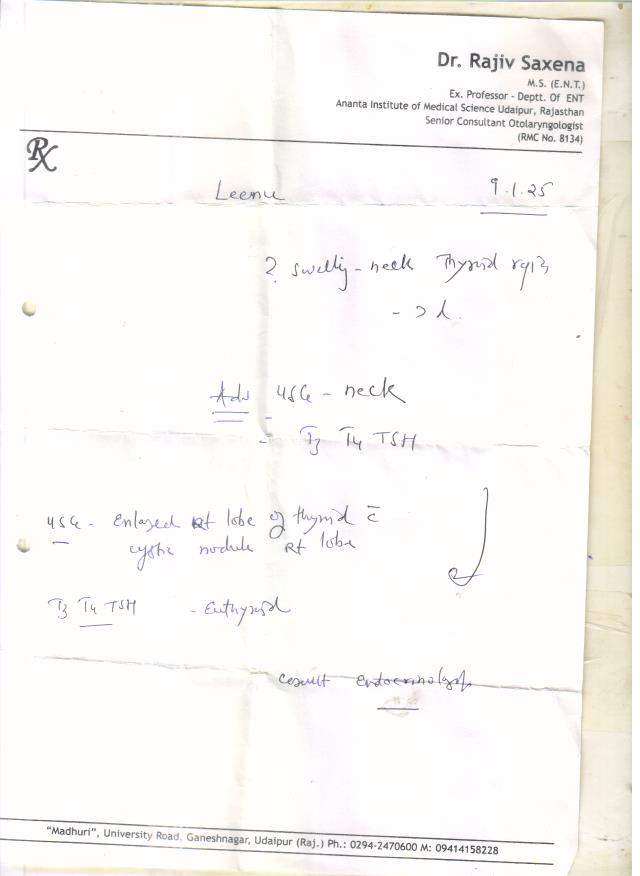 Dr. Rajiv Saxena
M.S. (E.N.T.)
Ex. Professor - Deptt. Of ENT
Ananta Institute of Medical Science Udaipur, Rajasthan
Senior Consultant Otolaryngologist
(RMC No. 8134)
Rx
Leenu 9.1.25
? swelling - neck Thyroid
Adv USG - neck
- T3 T4 TSH
USG - Enlarged Rt lobe of thyroid c̄
cystic nodule Rt lobe
T3 T4 TSH - Euthyroid
consult Endocrinologist
"Madhuri", University Road, Ganeshnagar, Udaipur (Raj.) Ph.: 0294-2470600 M: 09414158228